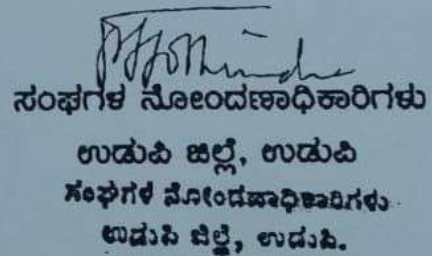 ಸಂಘಗಳ ನೋಂದಣಾಧಿಕಾರಿಗಳು
ಉಡುಪಿ ಜಿಲ್ಲೆ, ಉಡುಪಿ
ಸಂಘಗಳ ನೋಂದಣಾಧಿಕಾರಿಗಳು
ಉಡುಪಿ ಜಿಲ್ಲೆ, ಉಡುಪಿ.